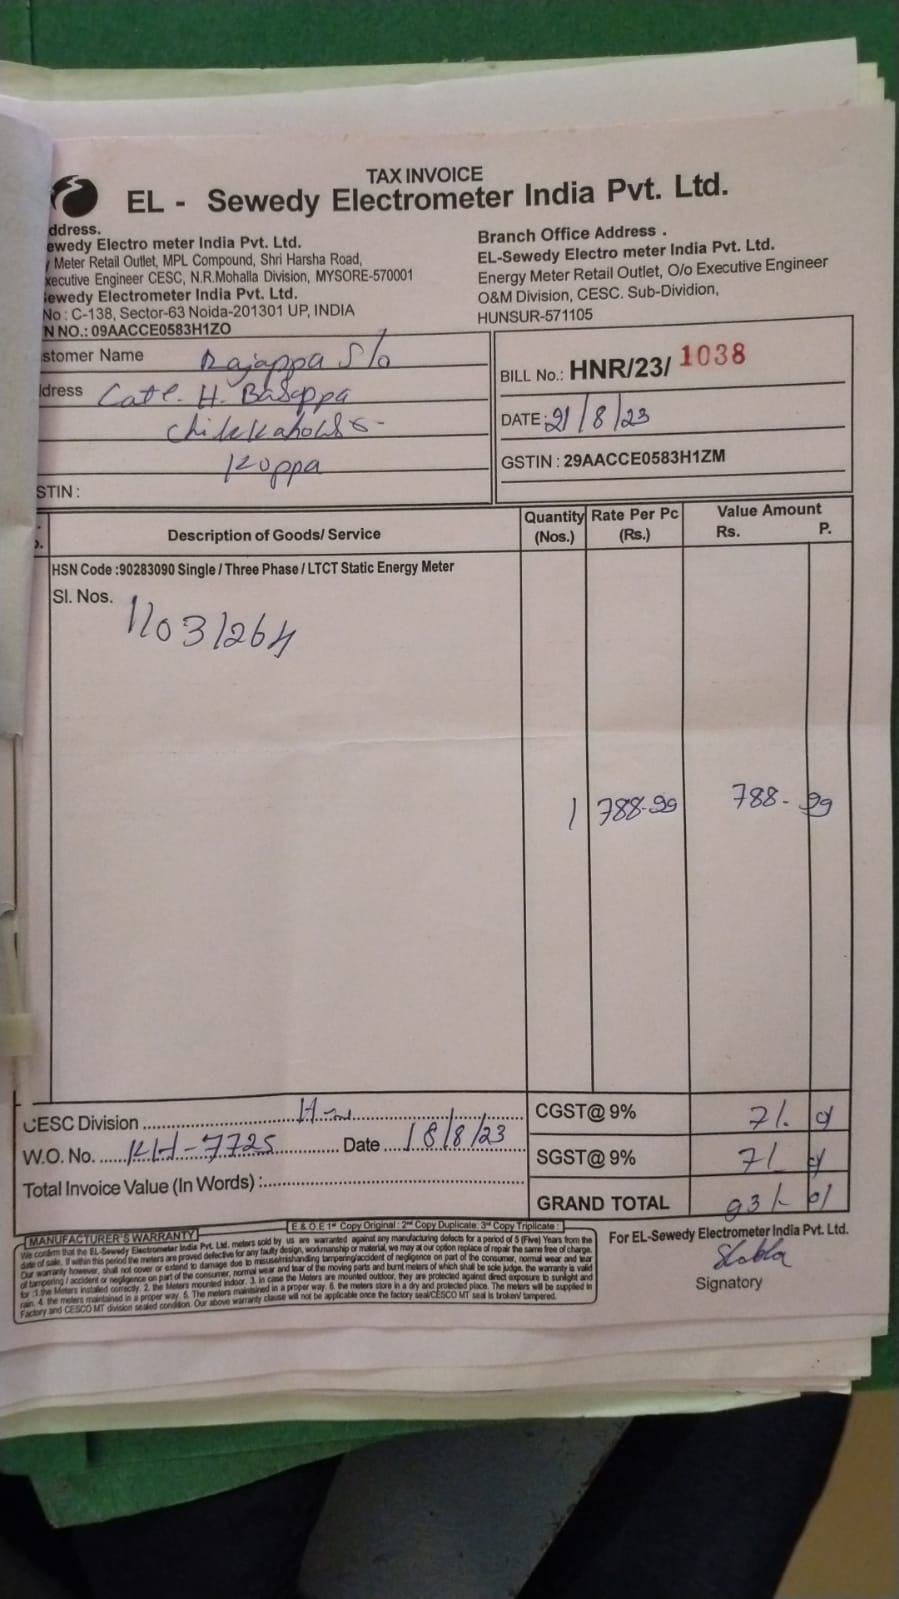 TAX INVOICE
EL - Sewedy Electrometer India Pvt. Ltd.
ddress.
ewedy Electro meter India Pvt. Ltd.
Meter Retail Outlet, MPL Compound, Shri Harsha Road,
xecutive Engineer CESC, N.R.Mohalla Division, MYSORE-570001
ewedy Electrometer India Pvt. Ltd.
No : C-138, Sector-63 Noida-201301 UP, INDIA
N NO.: 09AACCE0583H1ZO
Branch Office Address .
EL-Sewedy Electro meter India Pvt. Ltd.
Energy Meter Retail Outlet, O/o Executive Engineer
O&M Division, CESC. Sub-Dividion,
HUNSUR-571105
stomer Name Rajappa S/o
dress Late. H. Basappa
Kuppa
STIN :
BILL No.: HNR/23/ 1038
DATE : 21/8/23
GSTIN : 29AACCE0583H1ZM
Description of Goods/ Service Quantity (Nos.) Rate Per Pc (Rs.) Value Amount Rs. P.
HSN Code :90283090 Single / Three Phase / LTCT Static Energy Meter
Sl. Nos.
11031264
1 788-99 788- 99
CESC Division
W.O. No. KH-7725 Date 18/8/23
Total Invoice Value (In Words) :
CGST@ 9% 71. 01
SGST@ 9% 71 01
GRAND TOTAL 931- 01
E & O.E 1st Copy Original : 2nd Copy Duplicate. 3rd Copy Triplicate :
MANUFACTURER'S WARRANTY
We confirm that the EL-Sewedy Electrometer India Pvt. Ltd. meters sold by us are warranted against any manufacturing defects for a period of 5 (Five) Years from the
date of sale. If within this period the meters are proved defective for any faulty design, workmanship or material, we may at our option replace of repair the same free of charge.
Our warranty however, shall not cover or extend to damage due to misuse/mishandling tampering/accident of negligence on part of the consumer, normal wear and tear
of tampering / accident or negligence on part of the consumer, normal wear and tear of the moving parts and burnt meters of which shall be sole judge. the warranty is valid
for :1.the Meters installed correctly. 2. the Meters mounted indoor. 3. in case the Meters are mounted outdoor, they are protected against direct exposure to sunlight and
rain. 4. the meters maintained in a proper way. 5. The meters maintained in a proper way. 6. the meters store in a dry and protected place. The meters will be supplied in
Factory and CESCO MT division sealed condition. Our above warranty clause will not be applicable once the factory seal/CESCO MT seal is broken/ tampered.
For EL-Sewedy Electrometer India Pvt. Ltd.
Signatory